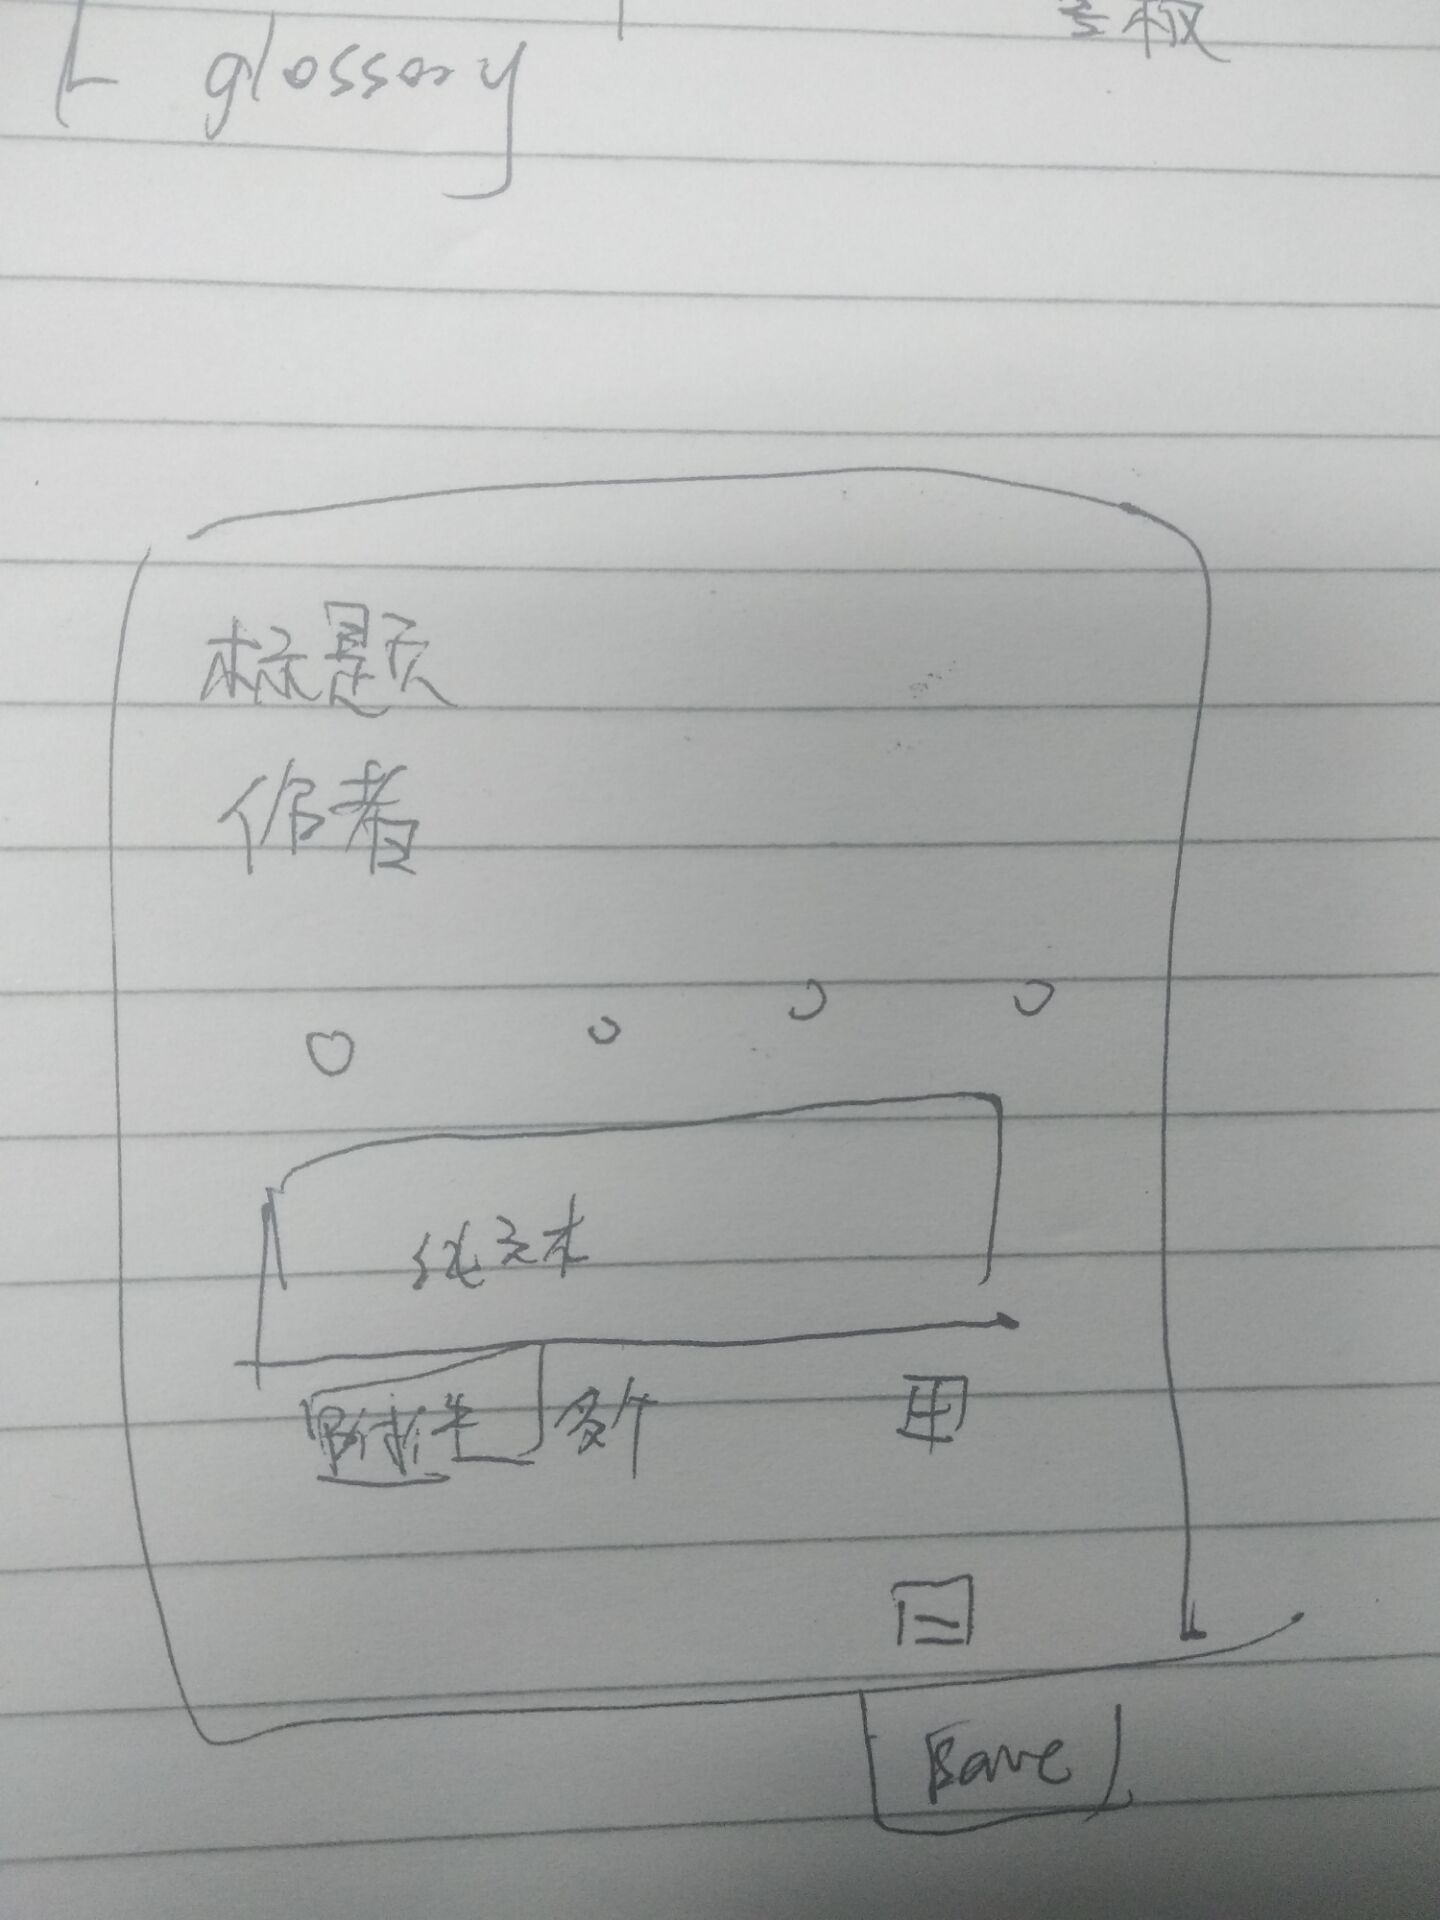 glossary
标题
作者
纯文本
附件 多个
Save